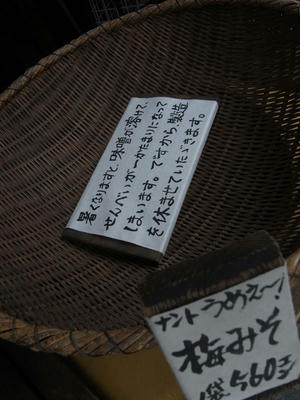 暑くなりますと、味噌が溶けて、
せんべいが一かたまりになって
しまいます。ですから、製造
を休ませていただきます。
ナントうめえ〜!
梅みそ
1袋 560ヱン